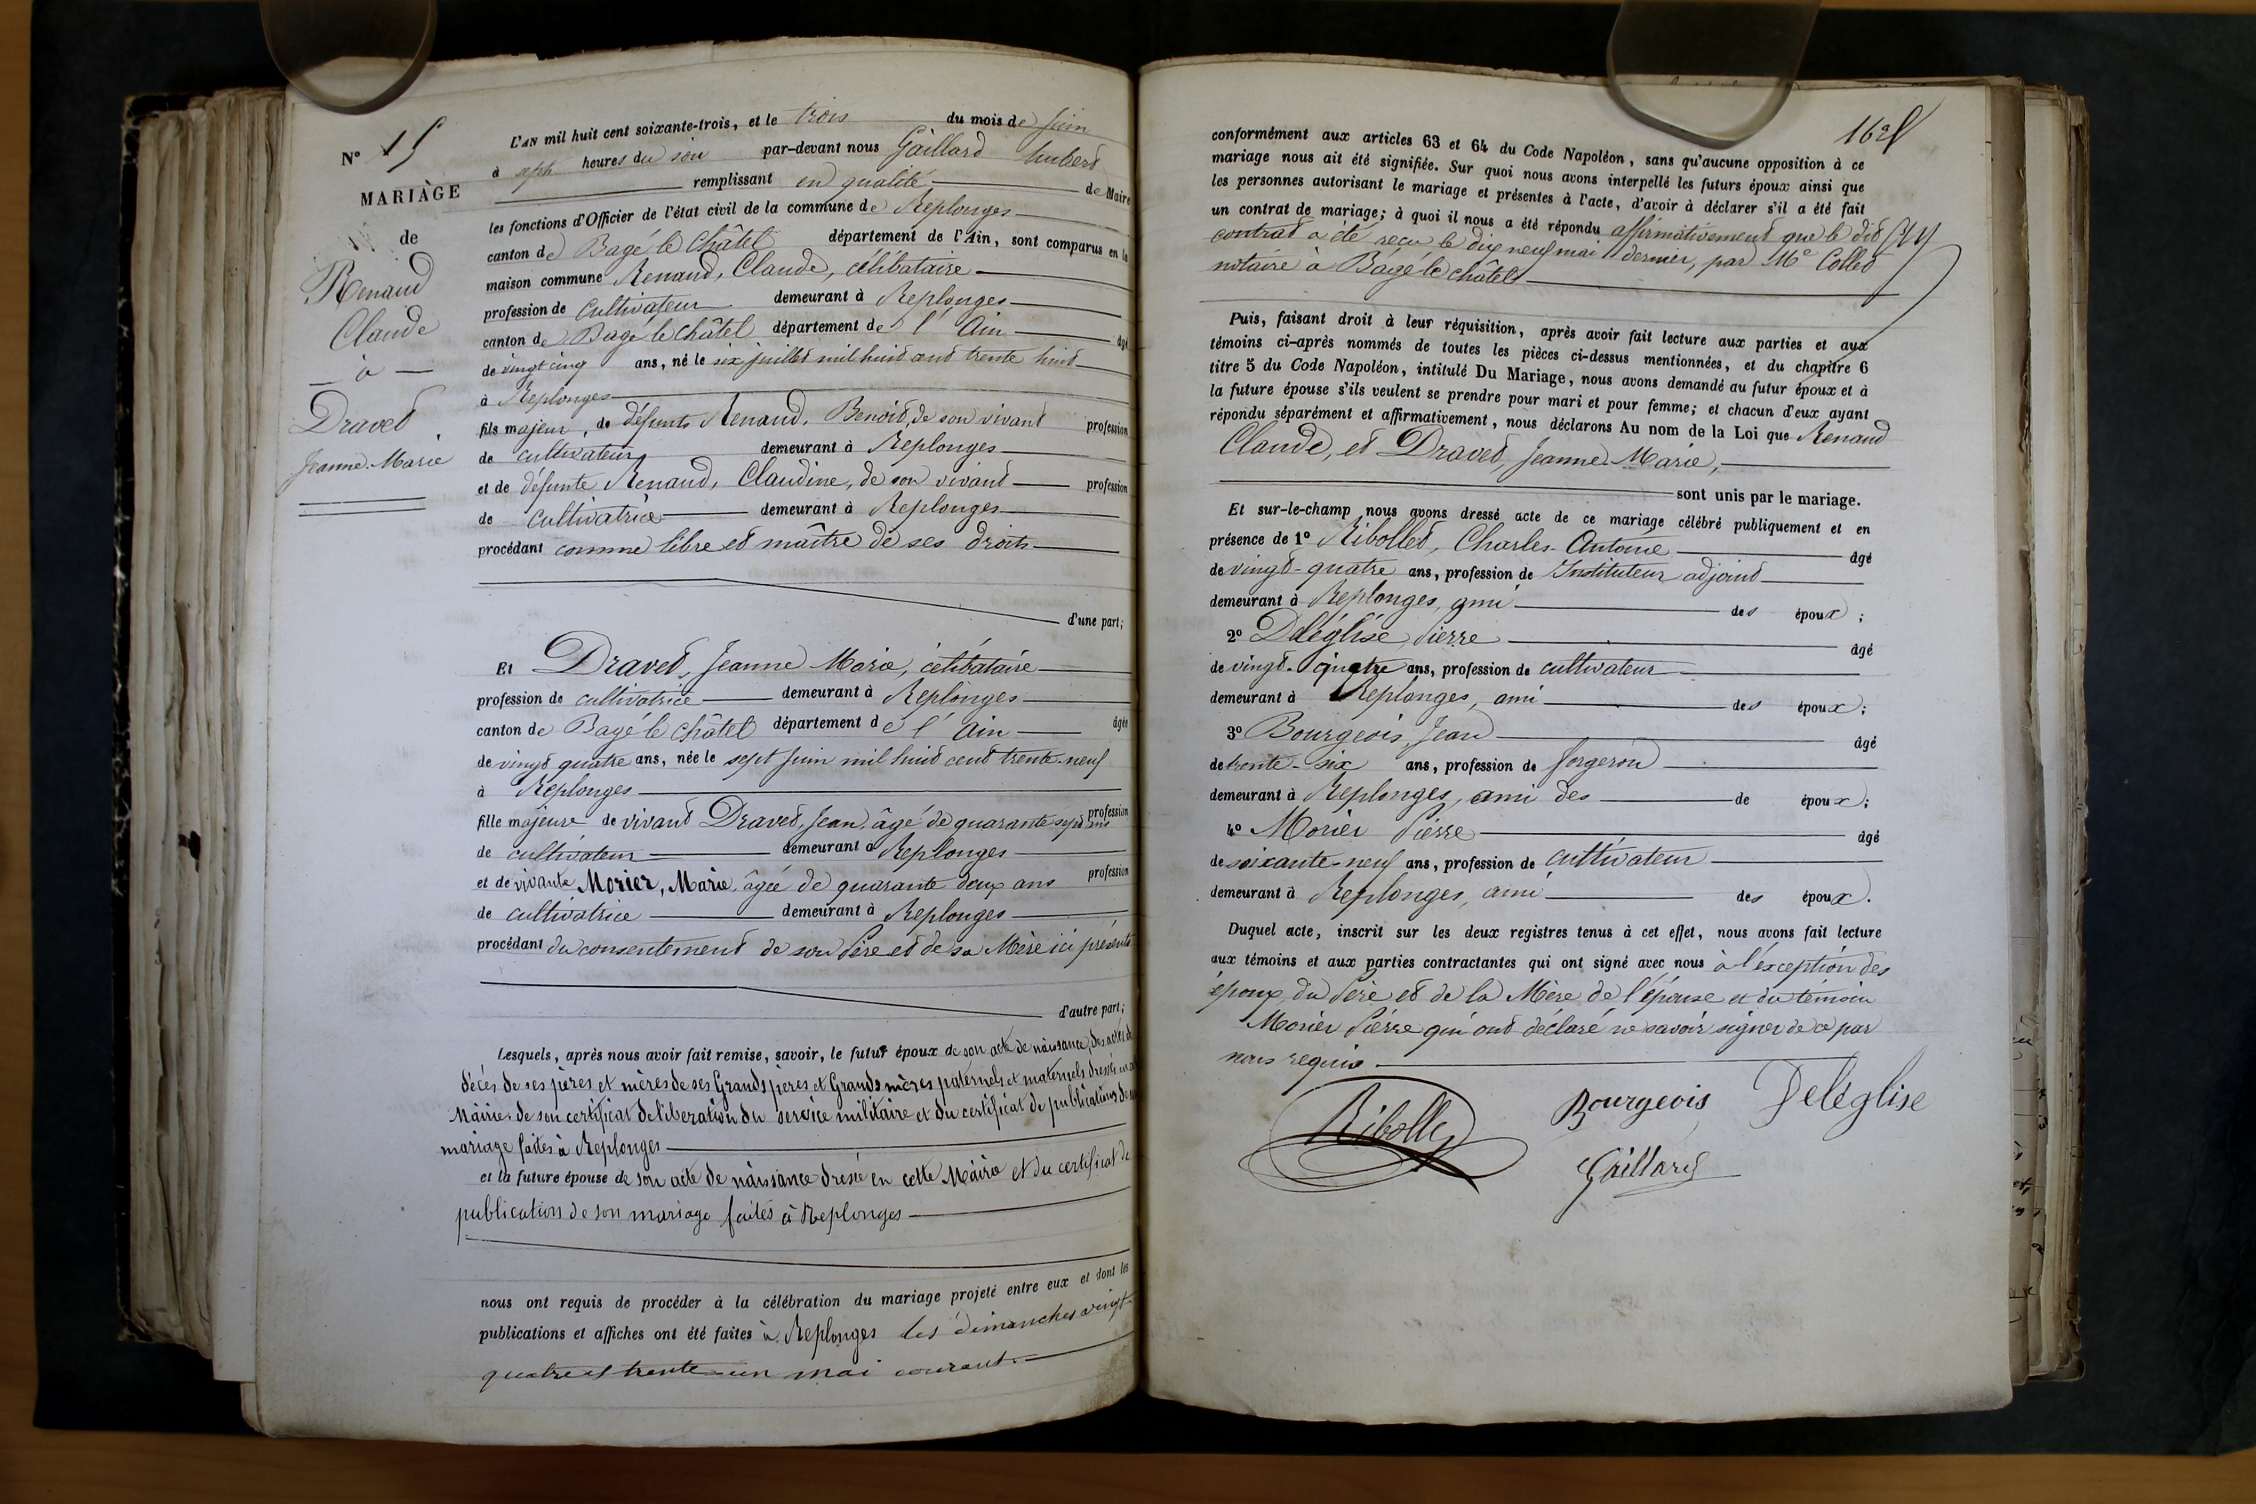 N° 15
MARIAGE
de
Renaud
Claude
— à —
Dravet
Jeanne-Marie
L'AN mil huit cent soixante-trois, et le trois du mois de Juin
à sept heures du soir par-devant nous Gaillard Imbert
remplissant en qualité de Maire
les fonctions d'Officier de l'état civil de la commune de Replonges
canton de Bagé le Châtel département de l'Ain, sont comparus en la
maison commune Renaud, Claude, célibataire
profession de Cultivateur demeurant à Replonges
canton de Bagé le Châtel département de l'Ain âgé
de vingt cinq ans, né le six juillet mil huit cent trente huit
à Replonges
fils majeur, de défunts Renaud, Benoit, de son vivant profession
de cultivateur demeurant à Replonges
et de défunte Renaud, Claudine, de son vivant profession
de cultivatrice demeurant à Replonges
procédant comme libre et maître de ses droits
d'une part;
Et Dravet, Jeanne Marie, célibataire
profession de cultivatrice demeurant à Replonges
canton de Bagé le Châtel département de l'Ain âgée
de vingt quatre ans, née le sept Juin mil huit cent trente-neuf
à Replonges
fille majeure de vivant Dravet, Jean, âgé de quarante sept ans profession
de cultivateur demeurant à Replonges
et de vivante Morier, Marie, âgée de quarante deux ans profession
de cultivatrice demeurant à Replonges
procédant du consentement de son Père et de sa Mère ici présents
d'autre part;
Lesquels, après nous avoir fait remise, savoir, le futur époux de son acte de naissance, des actes de
décès de ses pères et mères de ses Grands pères et Grands mères paternels et maternels dressés en
Mairie de son certificat de liberation du service militaire et du certificat de publications de son
mariage faites à Replonges
et la future épouse de son acte de naissance dressé en cette Mairie et du certificat de
publication de son mariage faites à Replonges
nous ont requis de procéder à la célébration du mariage projeté entre eux et dont les
publications et affiches ont été faites à Replonges les dimanches vingt-
quatre et trente-un mai courant.
conformément aux articles 63 et 64 du Code Napoléon, sans qu'aucune opposition à ce
mariage nous ait été signifiée. Sur quoi nous avons interpellé les futurs époux ainsi que
les personnes autorisant le mariage et présentes à l'acte, d'avoir à déclarer s'il a été fait
un contrat de mariage; à quoi il nous a été répondu affirmativement que le dit
contrat a été reçu le dix neuf mai dernier, par Me Collet
notaire à Bagé le châtel
Puis, faisant droit à leur réquisition, après avoir fait lecture aux parties et aux
témoins ci-après nommés de toutes les pièces ci-dessus mentionnées, et du chapitre 6
titre 5 du Code Napoléon, intitulé Du Mariage, nous avons demandé au futur époux et à
la future épouse s'ils veulent se prendre pour mari et pour femme; et chacun d'eux ayant
répondu séparément et affirmativement, nous déclarons Au nom de la Loi que Renaud
Claude, et Dravet, Jeanne-Marie,
sont unis par le mariage.
Et sur-le-champ nous avons dressé acte de ce mariage célébré publiquement et en
présence de 1° Ribollet, Charles-Antoine âgé
de vingt-quatre ans, profession de Instituteur adjoint
demeurant à Replonges, ami des époux;
2° Deléglise Pierre âgé
de vingt-quatre ans, profession de cultivateur
demeurant à Replonges, ami des époux;
3° Bourgeois, Jean âgé
de trente-six ans, profession de forgeron
demeurant à Replonges, ami des de époux;
4° Morier Pierre âgé
de soixante-neuf ans, profession de cultivateur
demeurant à Replonges, ami des époux.
Duquel acte, inscrit sur les deux registres tenus à cet effet, nous avons fait lecture
aux témoins et aux parties contractantes qui ont signé avec nous à l'exception des
époux, du Père et de la Mère de l'épouse et du témoin
Morier Pierre qui ont déclaré ne savoir signer de ce par
nous requis
Bourgeois Deléglise
Ribollet
Gaillard